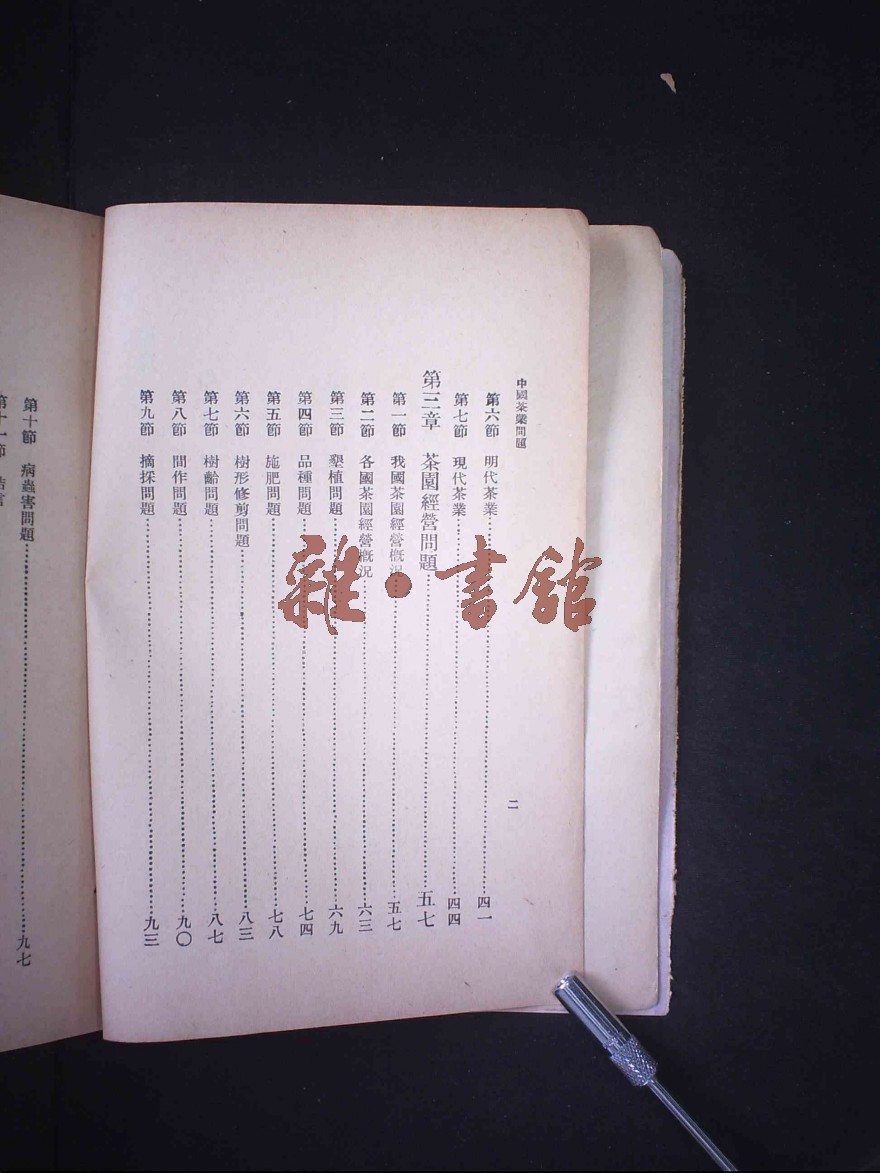 中國茶業問題
第六節 明代茶業……四一
第七節 現代茶業……四四
第三章 茶園經營問題……五七
第一節 我國茶園經營概況……五七
第二節 各國茶園經營概況……六三
第三節 墾植問題……六九
第四節 品種問題……七四
第五節 施肥問題……七八
第六節 樹形修剪問題……八三
第七節 樹齡問題……八七
第八節 間作問題……九〇
第九節 摘採問題……九三
二
第十節 病蟲害問題……九七
第十一節
雜·書館